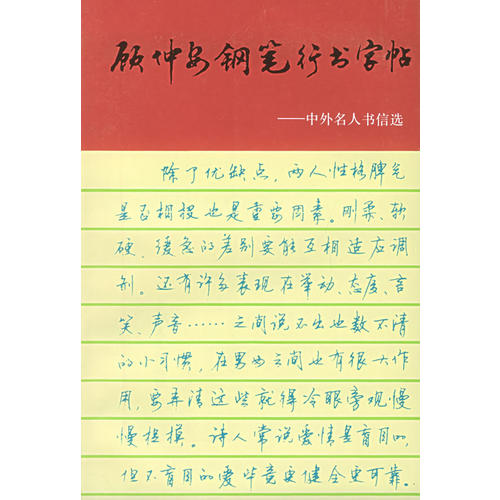 顾仲安钢笔行书字帖
——中外名人书信选
除了优缺点，两人性格脾气
是否相投也是重要因素。刚柔、软
硬、缓急的差别要能互相适应调
剂。还有许多表现在举动、态度、言
笑、声音……之间说不出也数不清
的小习惯，在男女之间也有很大作
用，要弄清这些就得冷眼旁观慢
慢捉摸。诗人常说爱情是盲目的，
但不盲目的爱毕竟更健全更可靠。